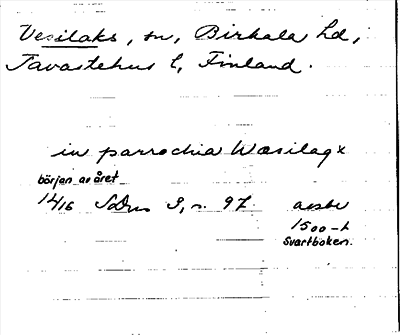 Vesilaks, sn, Birkala hd,
Tavastehus l, Finland.
in parrochia Wæsilax
början av året
1416 SDns 9, n. 97. avskr
1500-t
Svartboken.